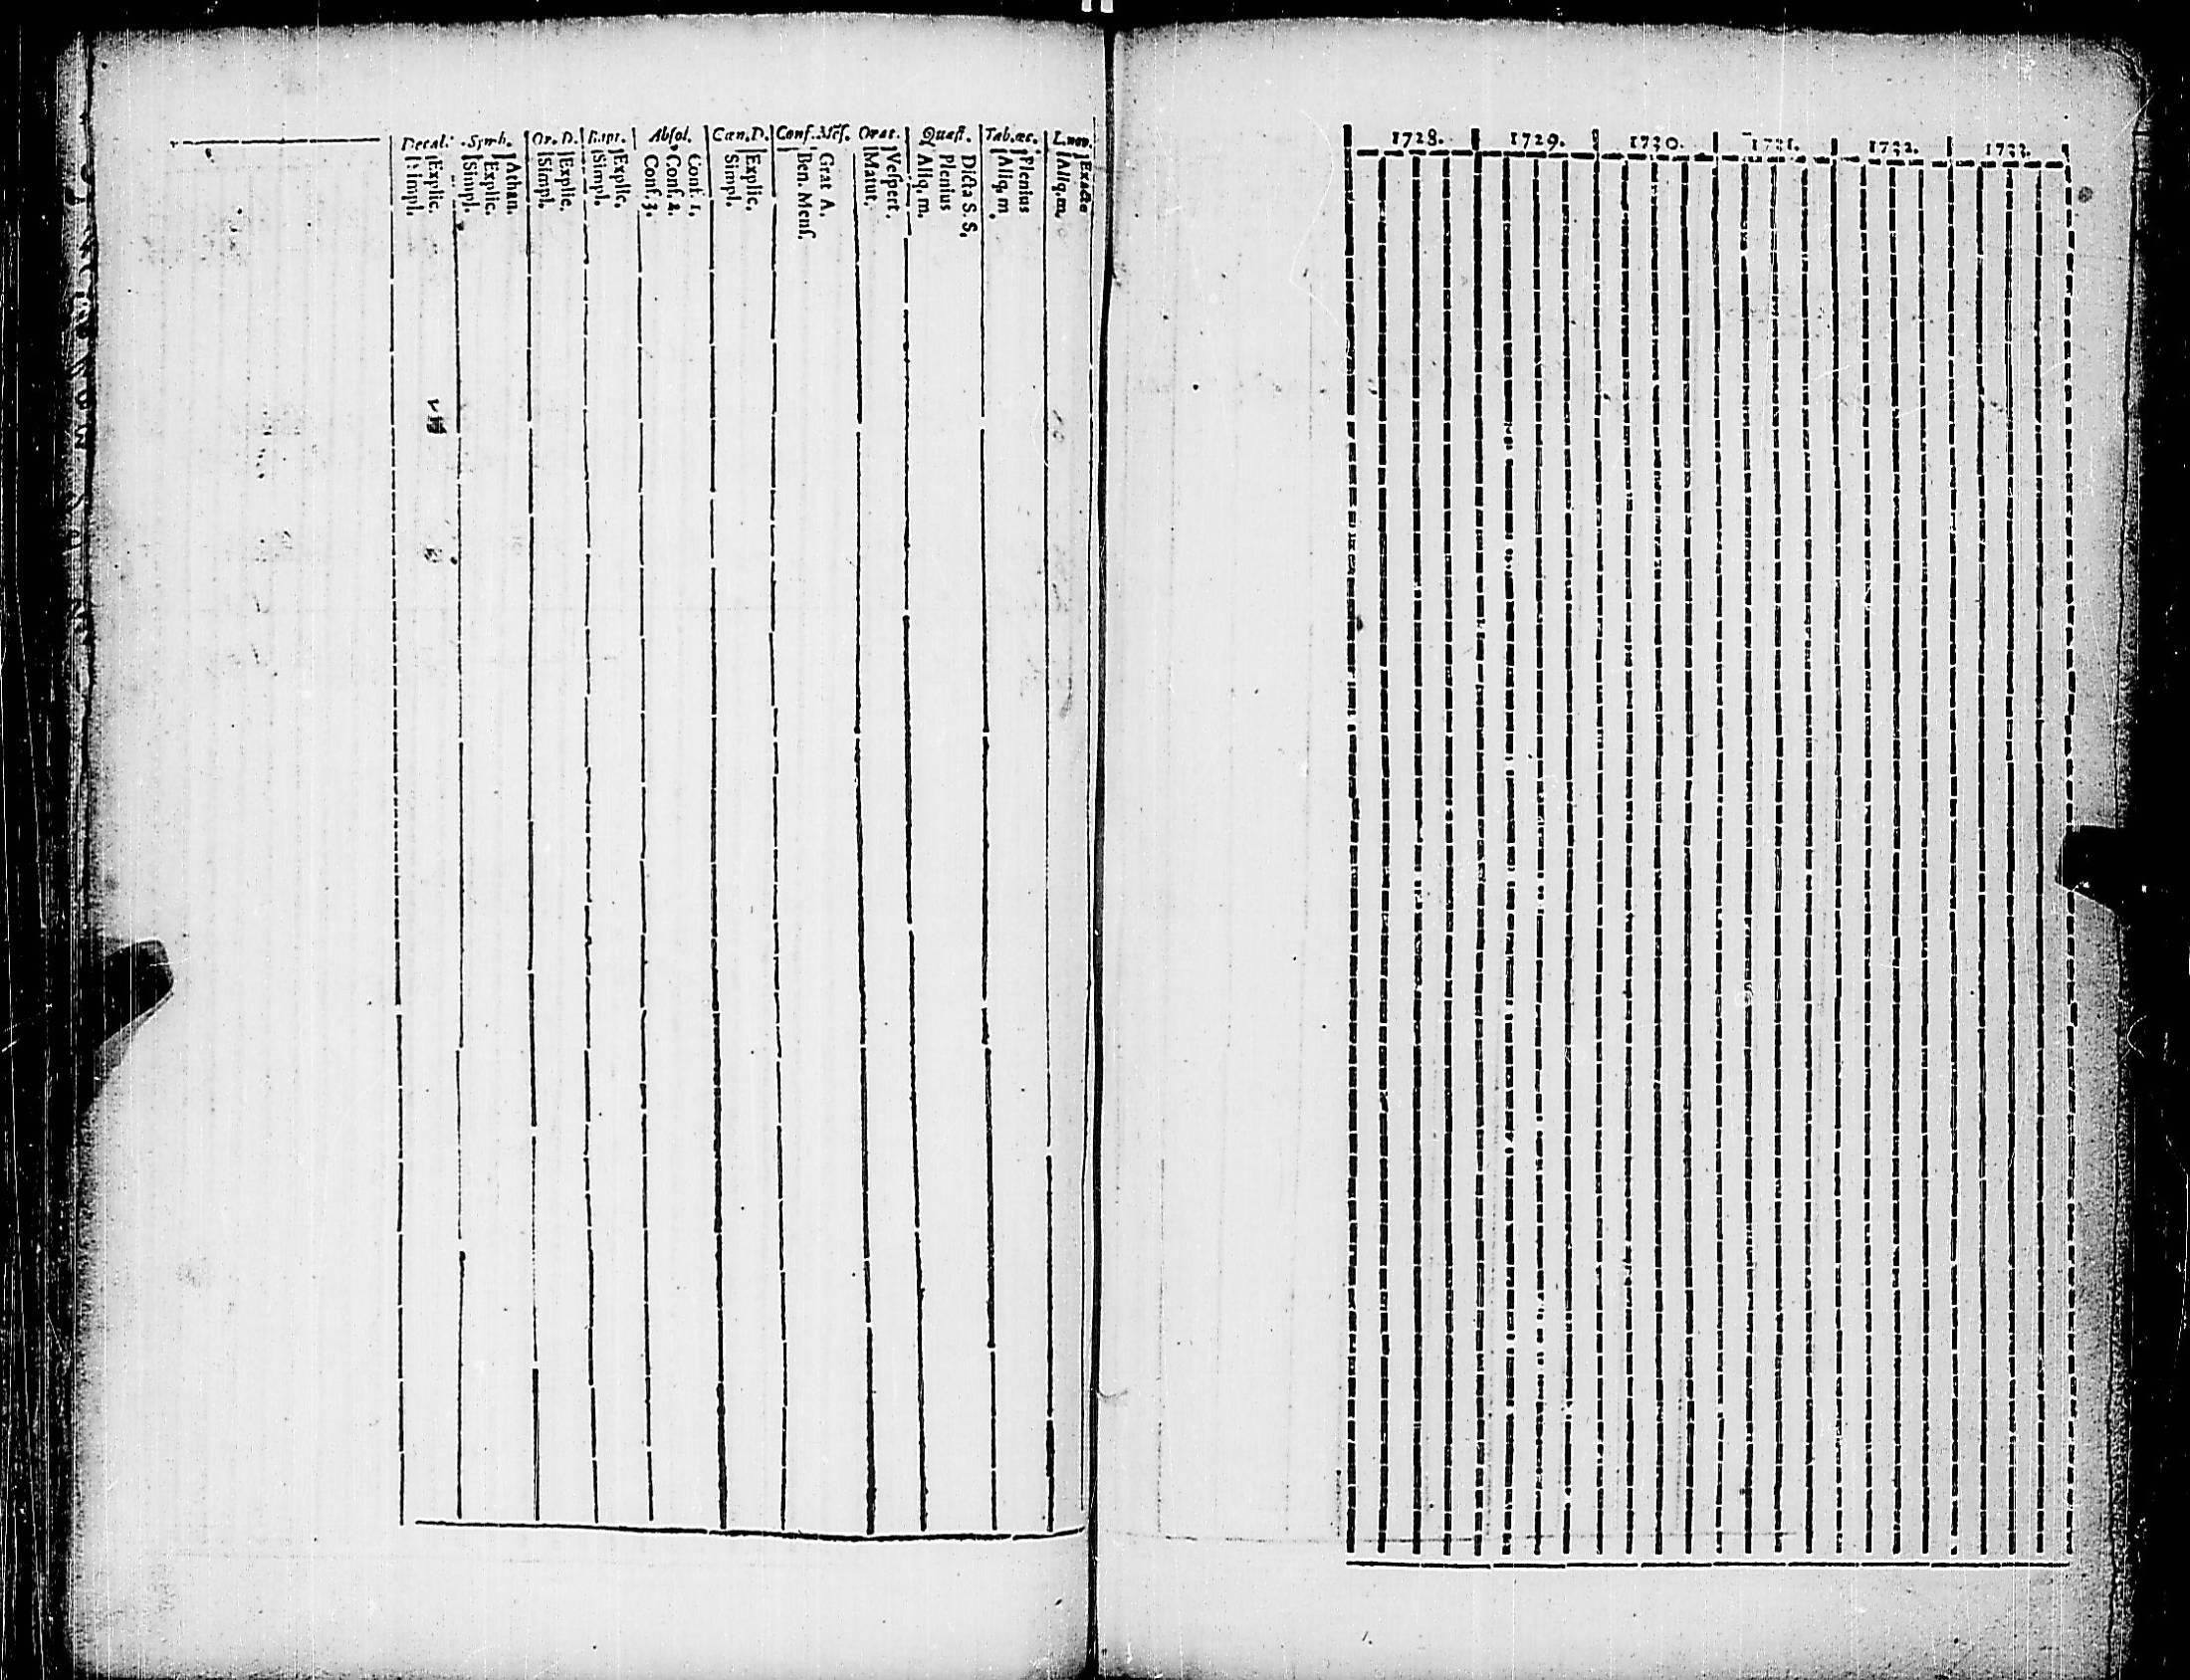 Decal. Symb. Or. D. Bapt. Absol. Cœn. D. Conf. Mēſ. Orat. Quæſt. Tab. œc. L. nov.
Simpl.
Explic.
Simpl.
Explic.
Athan.
Simpl.
Explic.
Simpl.
Explic.
Conf. 3.
Conf. 2.
Conf. 1.
Simpl.
Explic.
Ben. Menſ.
Grat A.
Matut.
Veſpert.
Aliq. m.
Plenius
Dicta S. S.
Aliq. m
Plenius
Aliq. m.
Exacte
1728. 1729. 1730. 1731. 1732. 1733.